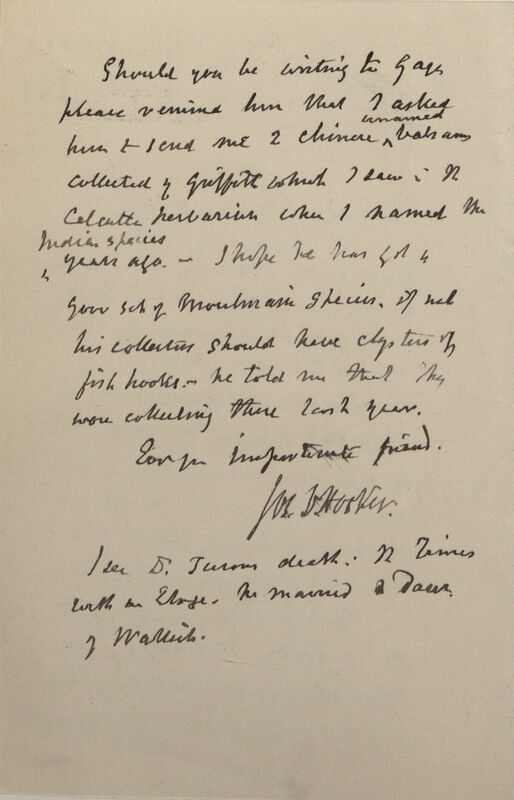 Should you be writing to Gage
please remind him that I asked
him to send me 2 Chinese ^ unnamed balsams
collected by Griffith which I saw in the
Calcutta herbarium when I named the
^ Indian species years ago. — I hope he has got a
good set of Moulmain species. if not
his collectors should have clysters of
fish hooks. — he told me that they
were collecting there last year.
Ever yr importunate friend.
Jos. D. Hooker.
I see Dr. death in the Times
with an Eloge. he married a Daur.
of Wallich.